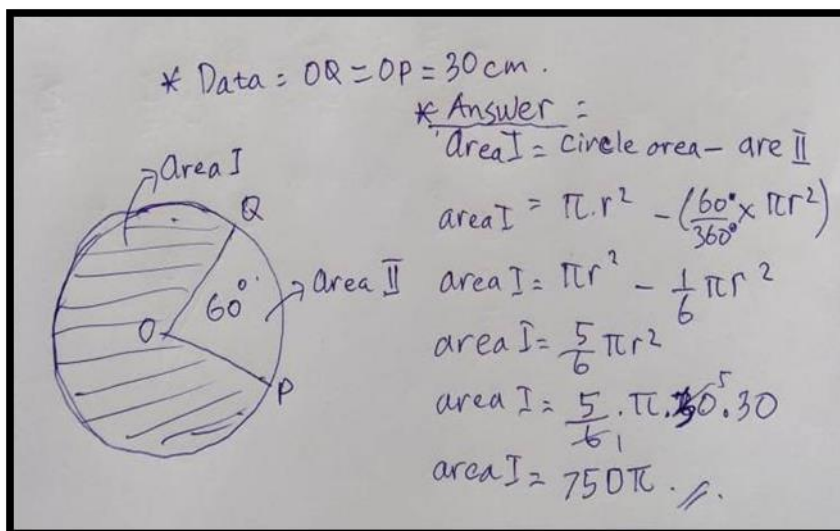 * Data = OQ = OP = 30 cm.
* Answer =
area I = Circle area - are II
area I = π.r² - (60°/360° × πr²)
area I = πr² - 1/6 πr²
area I = 5/6 πr²
area I = 5/6 1 .π.30 5.30
area I = 750π.//.
area I
Q
60°
area II
O
P